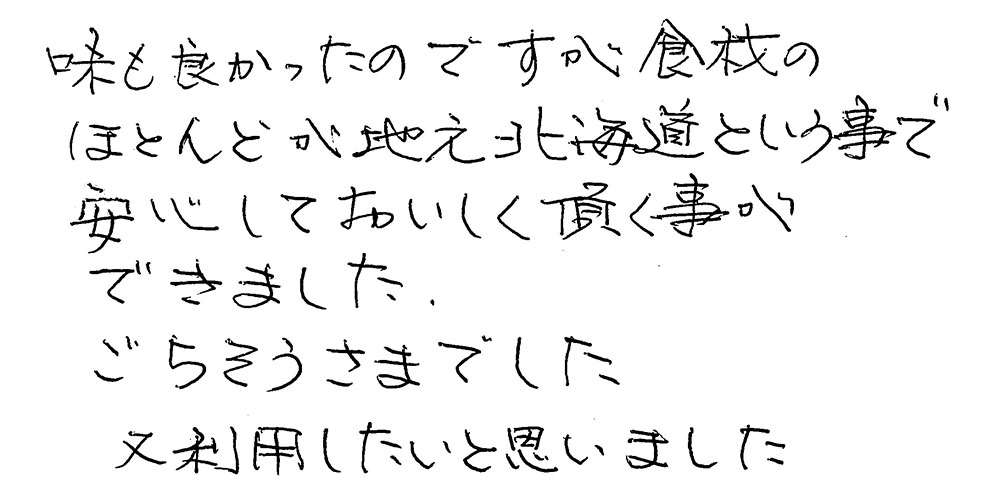 味も良かったのですが食材の
ほとんどが地元北海道という事で
安心しておいしく頂く事が
できました.
ごちそうさまでした
又利用したいと思いました